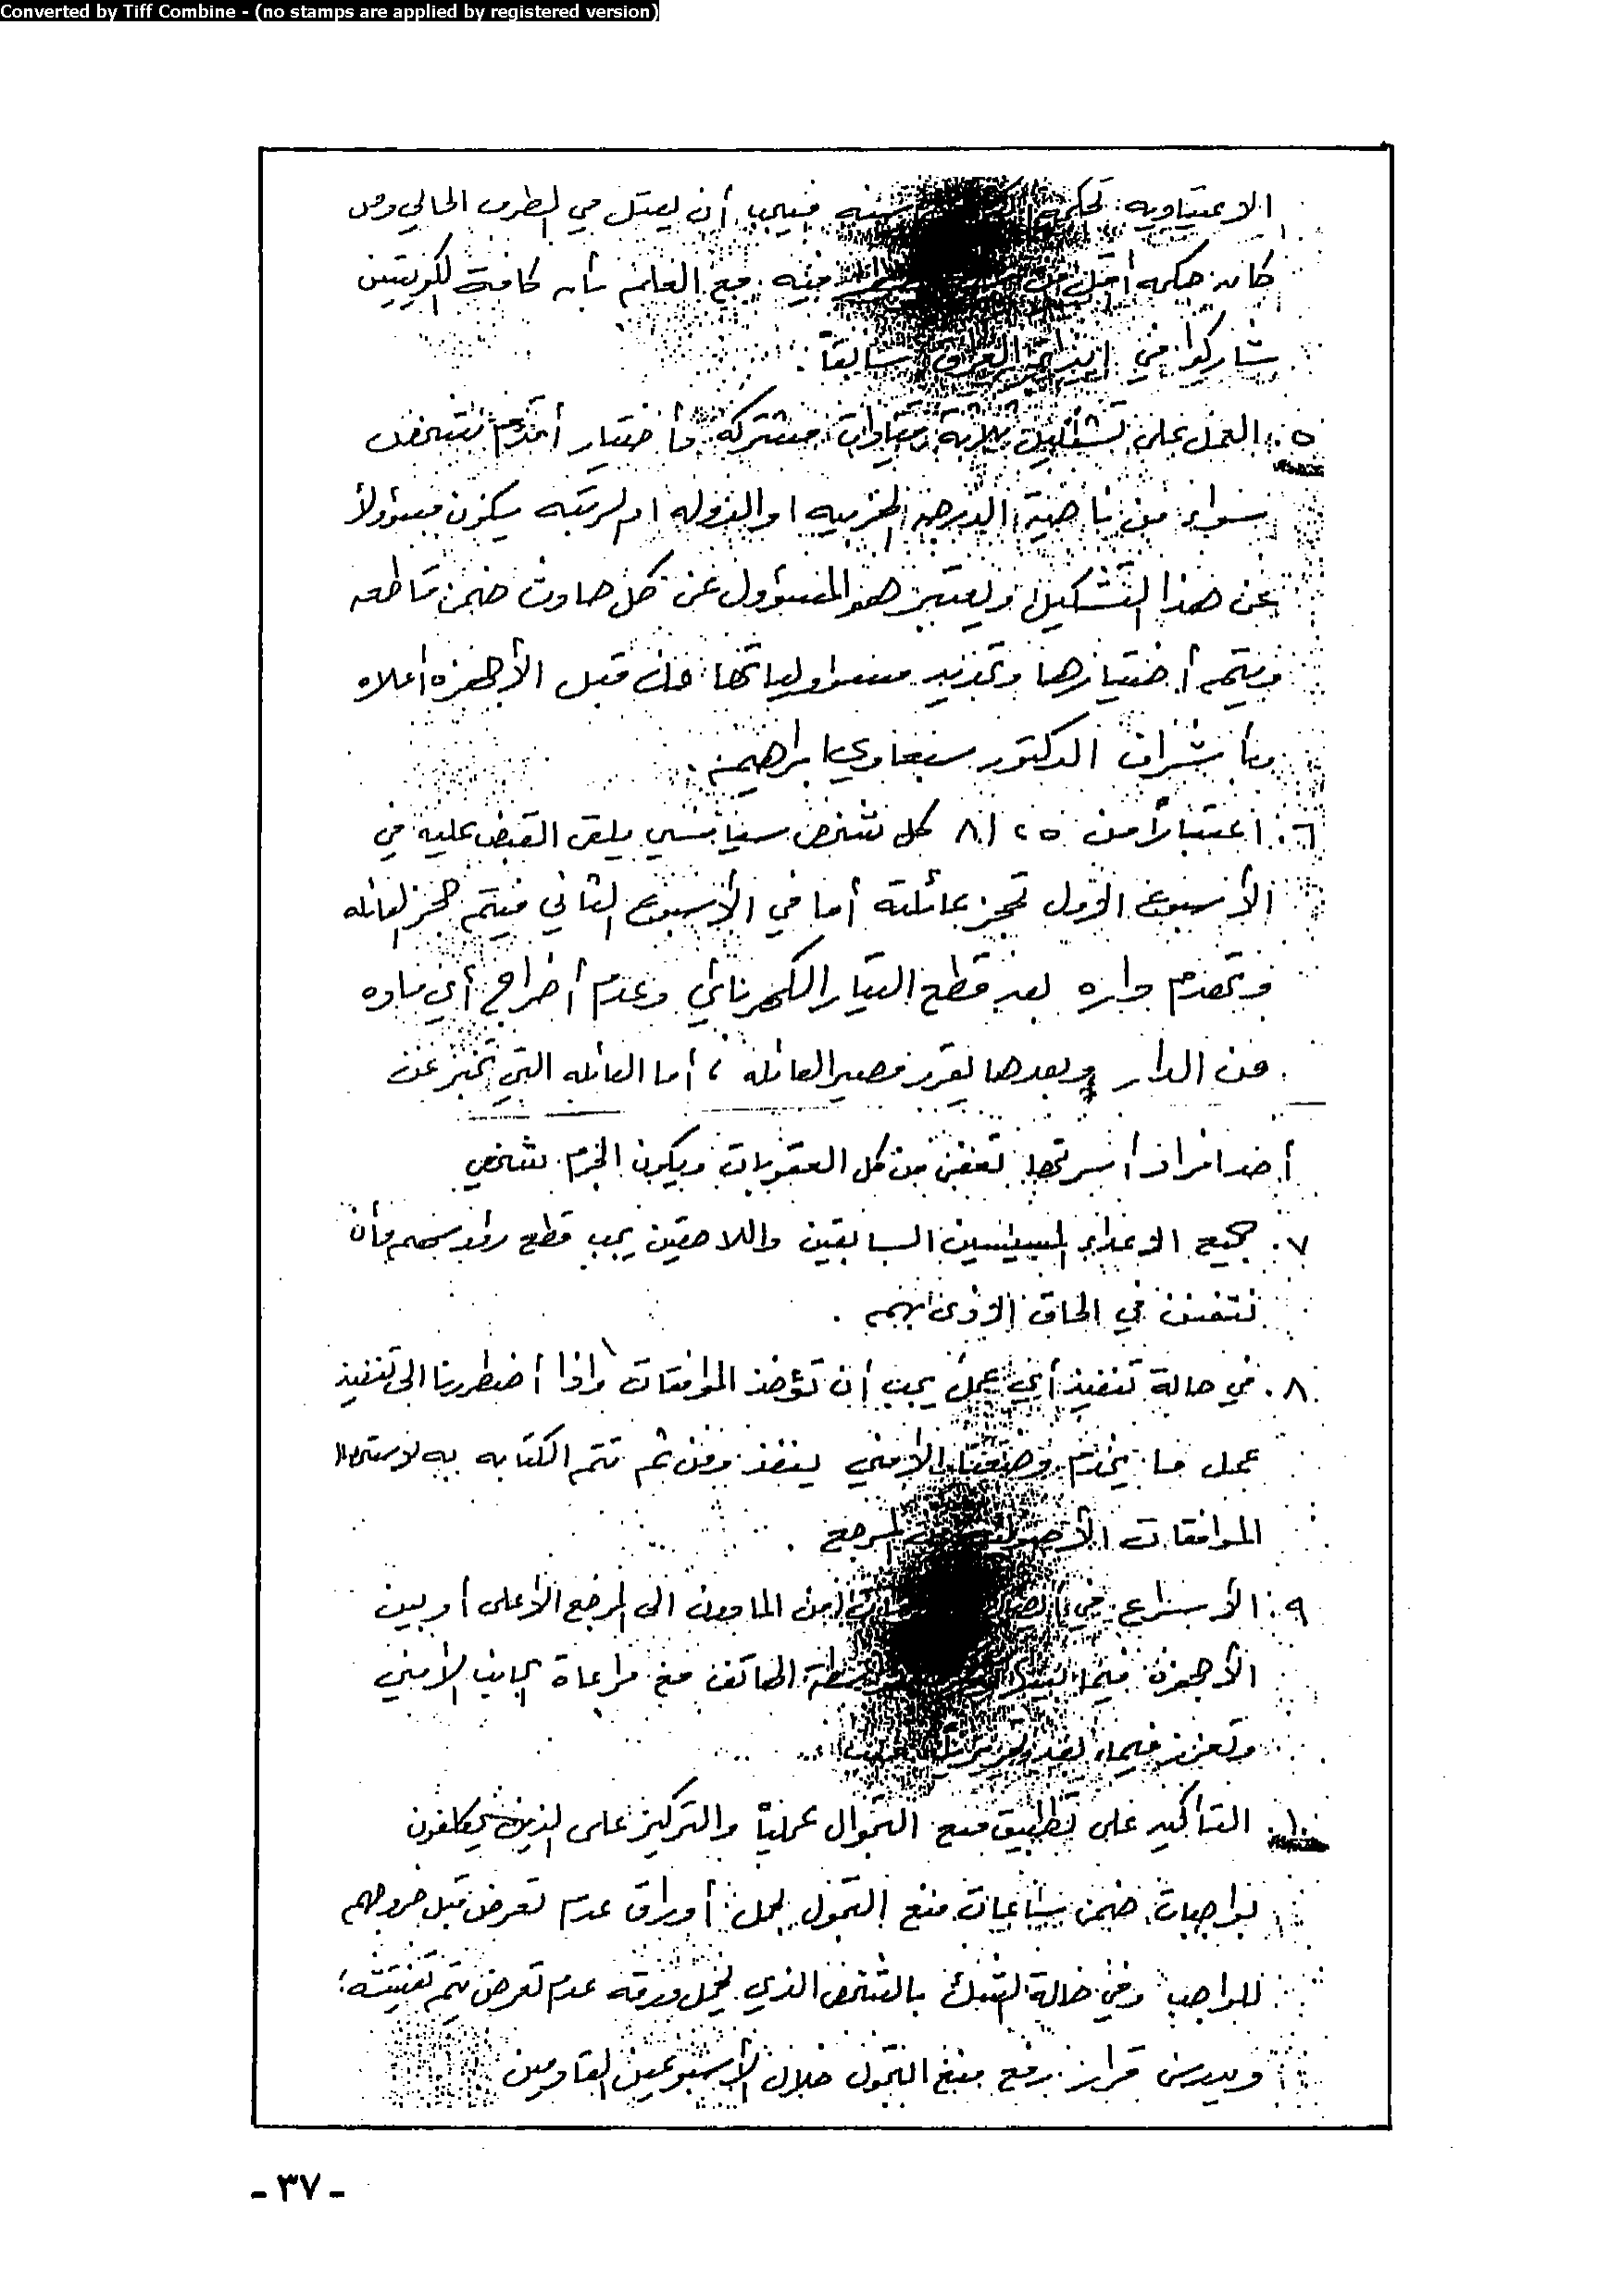 Converted by Tiff Combine - (no stamps are applied by registered version)
الاعتياديه تحكمه سنه فيجب أن يعتل في الظرف الحالي ومن
كان حكمه أقل من فيه مع العلم بأن كافة الكويتيين
شاركوا في ايذاء العراق سابقاً .
٥. العمل على تشكيل ثلاثة قيادات مشتركه وأختيار أقدم شخص
سواء من ناحية الدرجه الحزبيه او الدوله ام الرتبه يكون مسؤولاً
عن هذا التشكيل ويعتبر هو المسؤول عن كل حادث ضمن قاطعه
ويتم أختيارها وتحديد مسؤولياتها من قبل الأجهزه اعلاه
وبأشراف الدكتور سبعاوي ابراهيم .
٦. اعتباراً من ٨/٢٥ كل شخص سياسي يلقى القبض عليه في
الأسبوع الأول تحجز عائلته أما في الأسبوع الثاني فيتم حجز العائله
وتهدم داره بعد قطع التيار الكهربائي وعدم أخراج أي ماده
من الدار وبعدها يقرر مصير العائله ، أما العائله التي تخبر عن
أحد افراد أسرتها تعفى من كل العقوبات ويكون الجرم شخصي
٧. جميع الاعداء السياسيين السابقين واللاحقين يجب قطع رؤوسهم وأن
نتفنن في الحاق الاذى بهم .
٨. في حالة تنفيذ أي عمل يجب أن تؤخذ الموافقات واذا أضطررنا الى تنفيذ
عمل ما يخدم وضعنا الأمني ينفذ ومن ثم تتم الكتابه به لاستحصال
الموافقات الأصوليه من المرجع .
٩. الأسراع في من المادون الى المرجع الأعلى أو بين
الأجهزه فيما بواسطة الهاتف مع مراعاة الجانب الأمني
وتعزز فيما بعد تحريرياً
١٠. التأكيد على تطبيق منع التجوال عملياً والتركيز على الذين يكلفون
بواجبات ضمن ساعات منع التجول بحمل أوراق عدم تعرض قبل خروجهم
للواجب وفي حالة الشك بالشخص الذي يحمل ورقه عدم تعرض يتم تفتيشه ؛
ويدرس قرار رفع منع التجول خلال الأسبوعين القادمين
- ٣٧ -